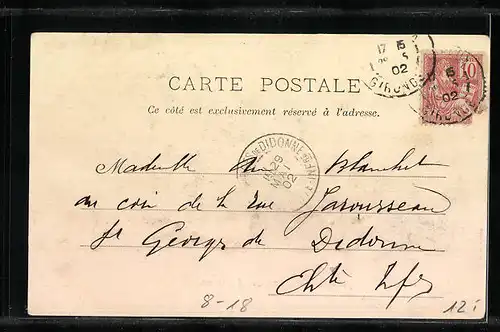 17 15
5
02
GIRONDE
10
15
5
02
GIRONDE
CARTE POSTALE
Ce côté est exclusivement réservé à l'adresse.
DE DIDONNE
29
MAI
02
Blanchet
au coin de la rue Jarousseau
St Georges de Didonne
Chte Infre
8-18
12